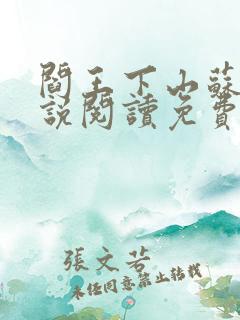 閻王下山蘇
說閱讀免費
張文若
未經同意禁止轉載